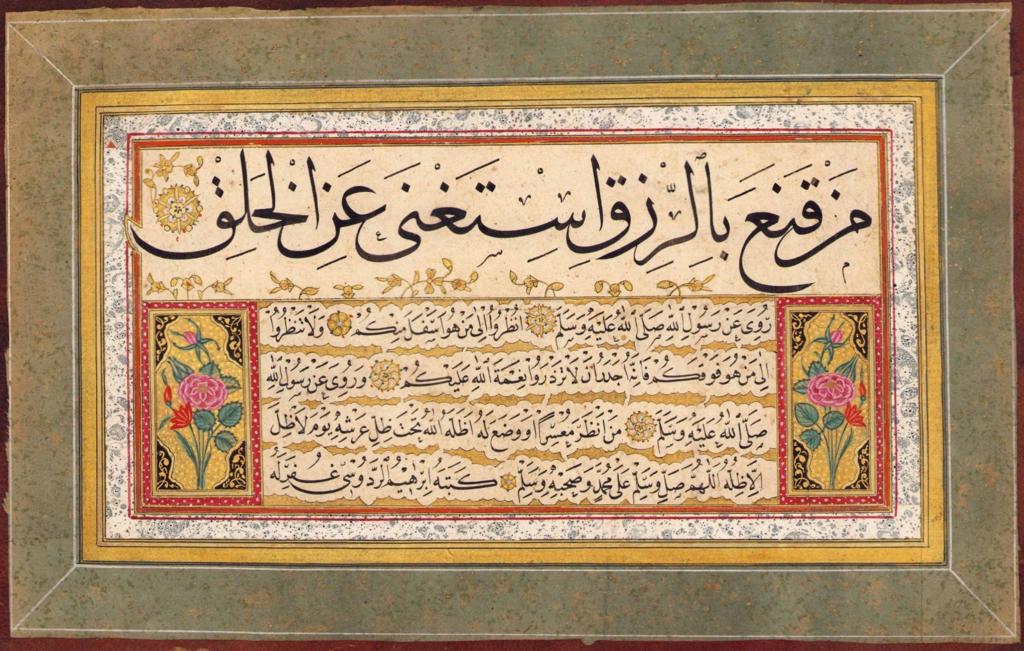 مَنْ قَنَعَ بِالرِّزْقِ اسْتَغْنَى عَنِ الْخَلْقِ
رُوِيَ عَنْ رَسُولِ اللهِ صَلَّى اللهُ عَلَيْهِ وَسَلَّمَ انْظُرُوا إِلَى مَنْ هُوَ اَسْفَلَ مِنْكُمْ وَلَا تَنْظُرُوا
إِلَى مَنْ هُوَ فَوْقَكُمْ فَإِنَّهُ اَجْدَرُ اَنْ لَا تَزْدَرُوا نِعْمَةَ اللهِ عَلَيْكُمْ وَرُوِيَ عَنْ رَسُولِ اللهِ
صَلَّى اللهُ عَلَيْهِ وَسَلَّمَ مَنْ اَنْظَرَ مُعْسِرًا اَوْ وَضَعَ لَهُ اَظَلَّهُ اللهُ تَحْتَ ظِلِّ عَرْشِهِ يَوْمَ لَا ظِلَّ
اِلَّا ظِلُّهُ اَللّٰهُمَّ صَلِّ وَسَلِّمْ عَلَى مُحَمَّدٍ وَصَحْبِهِ وَسَلِّمْ كَتَبَهُ اِبْرٰهِيمُ الرُّدُوسِيُّ غُفِرَ لَهُ